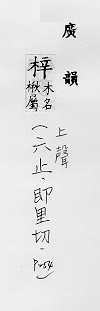 廣韻
梓
木名
楸屬
上聲
(六止·即里切·P254)